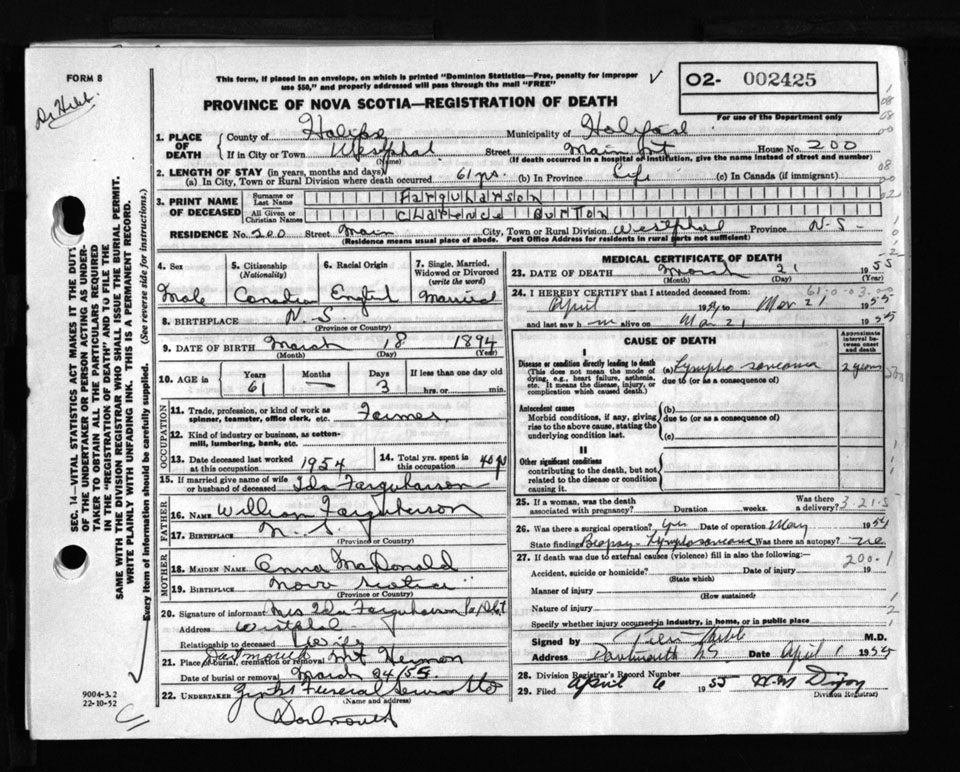 FORM 8
Dr Hebb.
This form, if placed in an envelope, on which is printed "Dominion Statistics—Free, penalty for improper
use $50," and properly addressed will pass through the mail "FREE"
O2- 002425
For use of the Department only
PROVINCE OF NOVA SCOTIA—REGISTRATION OF DEATH
1. PLACE OF DEATH County of Halifax Municipality of Halifax
If in City or Town Westphal (Name) Street Main House No. 200
(If death occurred in a hospital or institution, give the name instead of street and number)
2. LENGTH OF STAY (in years, months and days)
(a) In City, Town or Rural Division where death occurred 61 yrs. (b) In Province Life (c) In Canada (if immigrant)
3. PRINT NAME OF DECEASED
Surname or Last Name Farquharson
All Given or Christian Names Clarence Burton
RESIDENCE No. 200 Street Main City, Town or Rural Division Westphal Province N-S-
(Residence means usual place of abode. Post Office Address for residents in rural parts not sufficient)
4. Sex Male
5. Citizenship (Nationality) Canadian
6. Racial Origin English
7. Single, Married, Widowed or Divorced (write the word) Married
8. BIRTHPLACE N.S. (Province or Country)
9. DATE OF BIRTH March 18 1894
(Month) (Day) (Year)
10. AGE in Years 61 Months — Days 3 If less than one day old hrs. or min.
OCCUPATION
11. Trade, profession, or kind of work as spinner, teamster, office clerk, etc. Farmer
12. Kind of industry or business, as cotton-mill, lumbering, bank, etc.
13. Date deceased last worked at this occupation 1954 14. Total yrs. spent in this occupation 40 yrs
15. If married give name of wife or husband of deceased Ida Farquharson
FATHER
16. NAME William Farquharson
17. BIRTHPLACE N.S. (Province or Country)
MOTHER
18. MAIDEN NAME Enna MacDonald
19. BIRTHPLACE Nova Scotia (Province or Country)
20. Signature of informant Mrs Ida Farquharson
Address Westphal
Relationship to deceased Wife
21. Place of burial, cremation or removal Dartmouth Mt Hermon
Date of burial or removal March 24/55
22. UNDERTAKER Funeral Service Ltd
(Name and address)
Dartmouth
MEDICAL CERTIFICATE OF DEATH
23. DATE OF DEATH March 21 1955
(Month) (Day) (Year)
24. I HEREBY CERTIFY that I attended deceased from:
April 1954 to Mar 21 1955
and last saw h im alive on Mar 21 1955
CAUSE OF DEATH
Approximate interval between onset and death
I
Disease or condition directly leading to death (a) Lympho sarcoma 2 years
(This does not mean the mode of dying, e.g., heart failure, asthenia, etc. It means the disease, injury, or complication which caused death.)
due to (or as a consequence of)
Antecedent causes (b)
Morbid conditions, if any, giving rise to the above cause, stating the underlying condition last.
due to (or as a consequence of)
(c)
II
Other significant conditions contributing to the death, but not related to the disease or condition causing it.
25. If a woman, was the death associated with pregnancy? Duration weeks. Was there a delivery? 3-21-5
26. Was there a surgical operation? Yes Date of operation May 1954
State findings Biopsy - Lymphosarcoma Was there an autopsy? no
27. If death was due to external causes (violence) fill in also the following: 200.1
Accident, suicide or homicide? Date of injury 19
(State which)
Manner of injury
(How sustained)
Nature of injury
Specify whether injury occurred in industry, in home, or in public place
Signed by Hebb M.D.
Address Dartmouth NS Date April 1 1955
28. Division Registrar's Record Number
29. Filed April 6 1955
Division Registrar
SEC. 14—VITAL STATISTICS ACT MAKES IT THE DUTY
OF THE UNDERTAKER OR PERSON ACTING AS UNDER-
TAKER TO OBTAIN ALL THE PARTICULARS REQUIRED
IN THE "REGISTRATION OF DEATH" AND TO FILE THE
SAME WITH THE DIVISION REGISTRAR WHO SHALL ISSUE THE BURIAL PERMIT.
WRITE PLAINLY WITH UNFADING INK. THIS IS A PERMANENT RECORD.
Every item of information should be carefully supplied. (See reverse side for instructions.)
9004-3.2
22-10-52